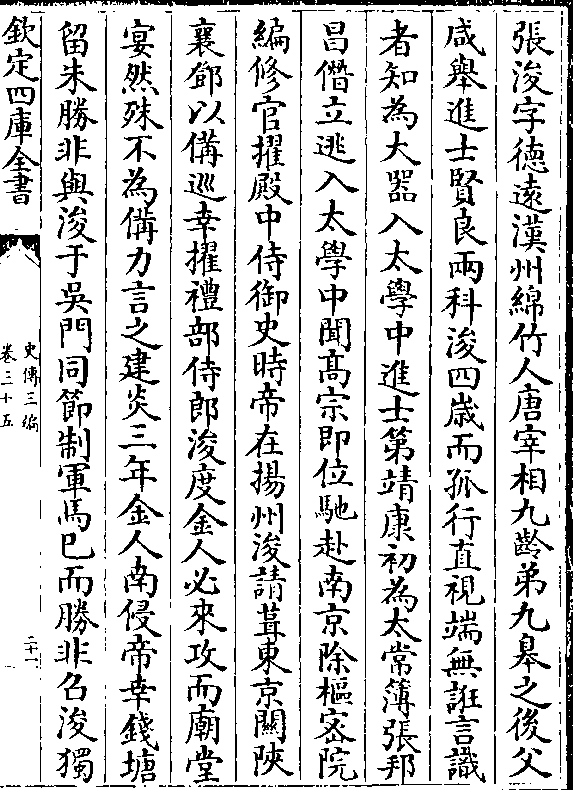 張浚字德遠漢州綿竹人唐宰相九齡弟九皋之後父
咸舉進士賢良兩科浚四歳而孤行直視端無誑言識
者知為大器入太學中進士第靖康初為太常簿張邦
昌僭立逃入太學中聞髙宗即位馳赴南京除樞宻院
編修官擢殿中侍御史時帝在揚州浚請葺東京闗陜
襄鄧以備巡幸擢禮部侍郎浚度金人必來攻而廟堂
宴然殊不為備力言之建炎三年金人南侵帝幸錢塘
留朱勝非與浚于吳門同節制軍馬已而勝非召浚獨
欽定四庫全書
史傳三編
卷三十五
二十一